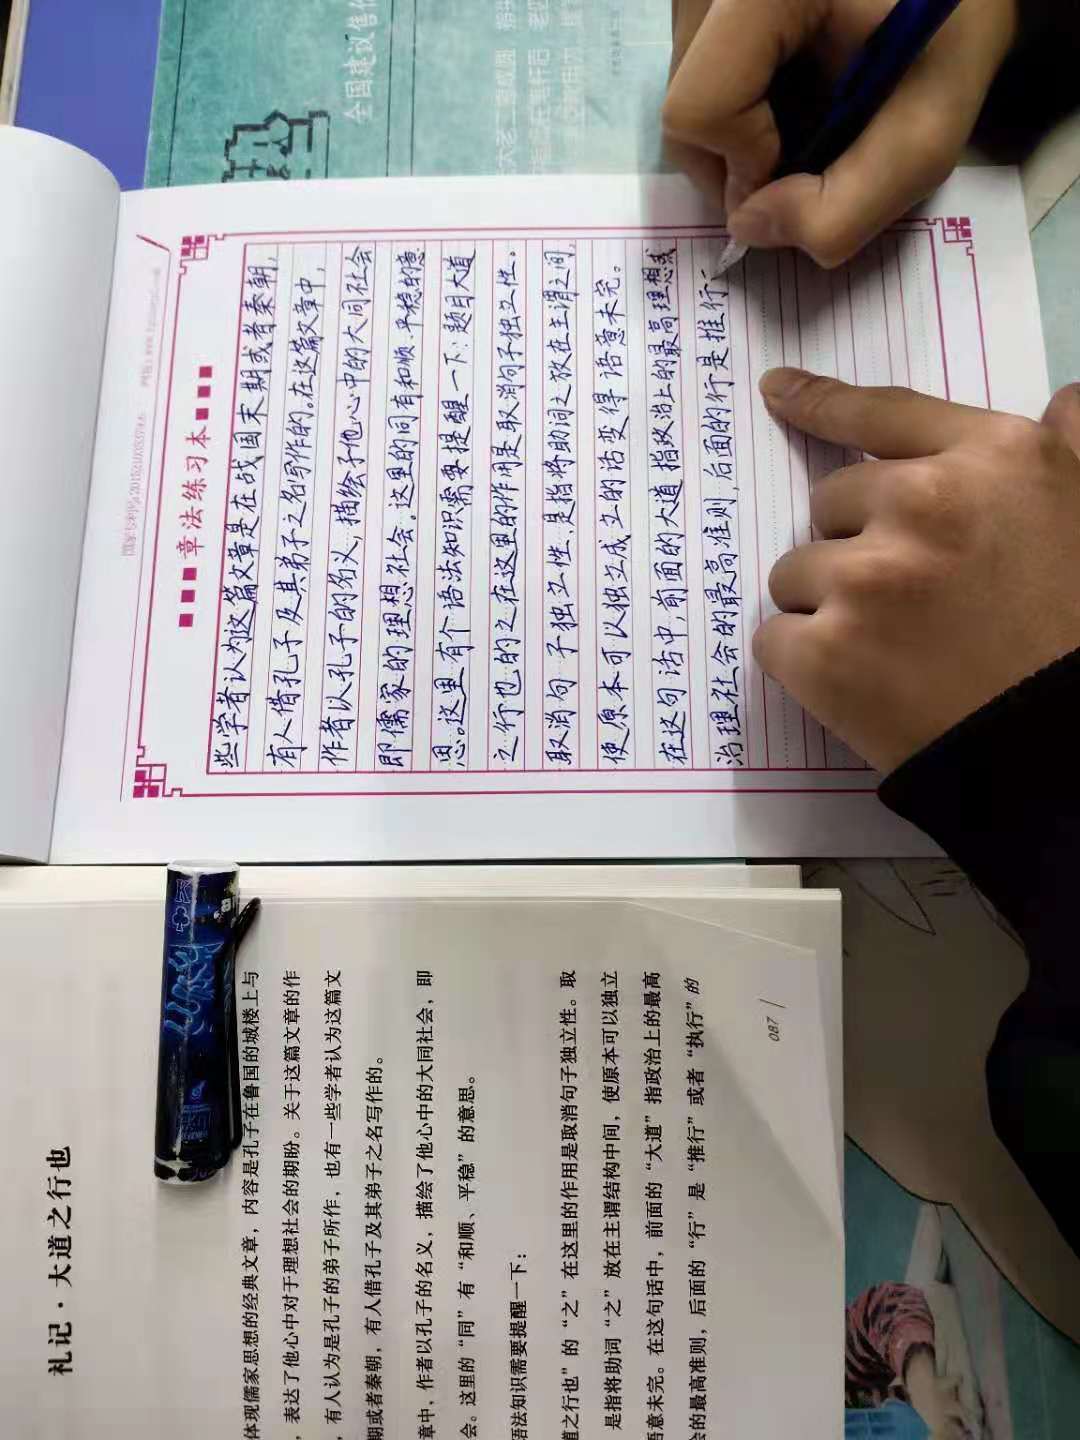 全国建议售价
国家专利号:201520103537.4
章法练习本
些学者认为这篇文章是在战国末期或者秦朝,
有人借孔子及其弟子之名写作的。在这篇文章中,
作者以孔子的名义,描绘了他心中的大同社会
即儒家的理想社会。这里的同有和顺、平稳的意
思。这里有个语法知识需要提醒一下:题目大道
之行也的之在这里的作用是取消句子独立性。
取消句子独立性,是指将助词之放在主谓之间,
使原本可以独立成立的话变得语意未完。
在这句话中,前面的大道指政治上的最高理想或
治理社会的最高准则,后面的行是推行
礼记·大道之行也
体现儒家思想的经典文章,内容是孔子在鲁国的城楼上与
,表达了他心中对于理想社会的期盼。关于这篇文章的作
,有人认为是孔子的弟子所作,也有一些学者认为这篇文
期或者秦朝,有人借孔子及其弟子之名写作的。
章中,作者以孔子的名义,描绘了他心中的大同社会,即
会。这里的“同”有“和顺、平稳”的意思。
语法知识需要提醒一下:
道之行也”的“之”在这里的作用是取消句子独立性。取
是指将助词“之”放在主谓结构中间,使原本可以独立
语意未完。在这句话中,前面的“大道”指政治上的最高
会的最高准则,后面的“行”是“推行”或者“执行”的
087